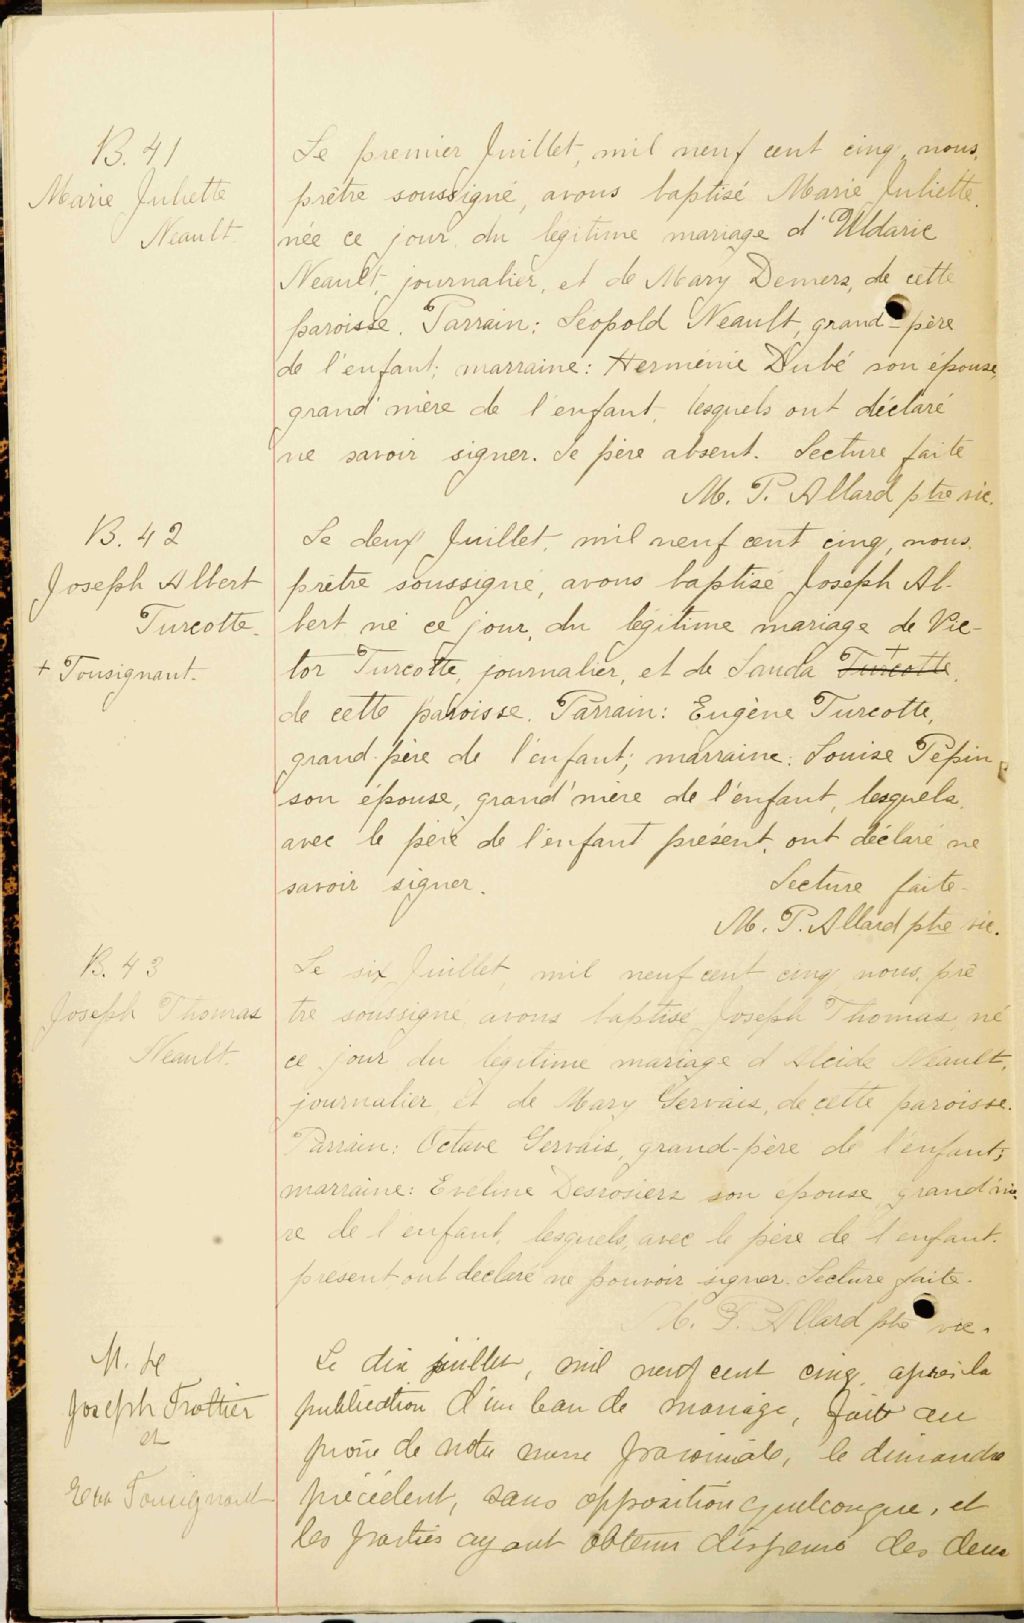 B. 41
Marie Juliette
Neault
Le premier Juillet, mil neuf cent cinq, nous,
prêtre soussigné, avons baptisé Marie Juliette,
née ce jour, du légitime mariage d'Uldaric
Neault, journalier, et de Mary Demers, de cette
paroisse. Parrain: Leopold Neault, grand-père
de l'enfant; marraine: Herménie Dubé son épouse,
grand'mère de l'enfant, lesquels ont déclaré
ne savoir signer. Le père absent. Lecture faite
M. P. Allard ptre vic.
B. 42
Joseph Albert
Turcotte.
+ Tousignant.
Le deux Juillet, mil neuf cent cinq, nous,
prêtre soussigné, avons baptisé Joseph Al-
bert né ce jour, du légitime mariage de Vic-
tor Turcotte, journalier, et de Landa + Turcotte,
de cette paroisse. Parrain: Eugène Turcotte,
grand-père de l'enfant; marraine: Louise Pépin
son épouse, grand'mère de l'enfant, lesquels,
avec le père de l'enfant présent, ont déclaré ne
savoir signer. Lecture faite.
M. P. Allard ptre vic.
B. 43
Joseph Thomas
Neault.
Le six Juillet, mil neuf cent cinq, nous, prê
tre soussigné, avons baptisé Joseph Thomas, né
ce jour du légitime mariage d'Alcide Neault,
journalier, et de Mary Gervais, de cette paroisse.
Parrain: Octave Gervais, grand-père de l'enfant;
marraine: Eveline Desrosiers son épouse, grand'mè-
re de l'enfant, lesquels, avec le père de l'enfant
présent ont déclaré ne pouvoir signer. Lecture faite.
M. P. Allard ptre vic.
M. 4
Joseph Trottier
et
Eva Tousignant
Le dix juillet, mil neuf cent cinq, après la
publication d'un ban de mariage, faite au
prône de notre messe paroissiale, le dimanche
précédent, sans opposition quelconque, et
les parties ayant obtenu dispense des deux